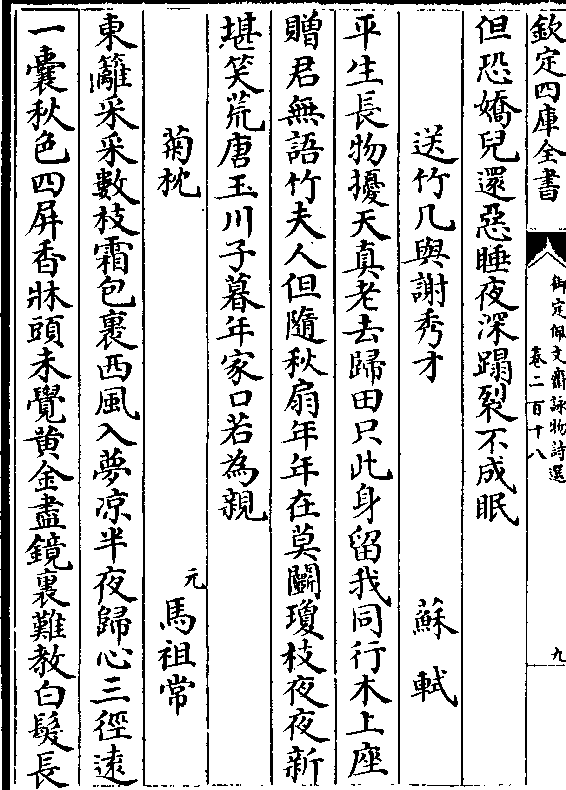 欽定四庫全書
御定佩文齋詠物詩選
卷二百十八
九
但恐嬌兒還惡睡夜深蹋裂不成眠
送竹几與謝秀才 蘇軾
平生長物擾天真老去歸田只此身留我同行木上座
贈君無語竹夫人但隨秋扇年年在莫鬬瓊枝夜夜新
堪笑荒唐玉川子暮年家口若為親
菊枕 元馬祖常
東籬采采數枝霜包裹西風入夢凉半夜歸心三徑遠
一囊秋色四屏香牀頭未覺黄金盡鏡裏難教白髮長